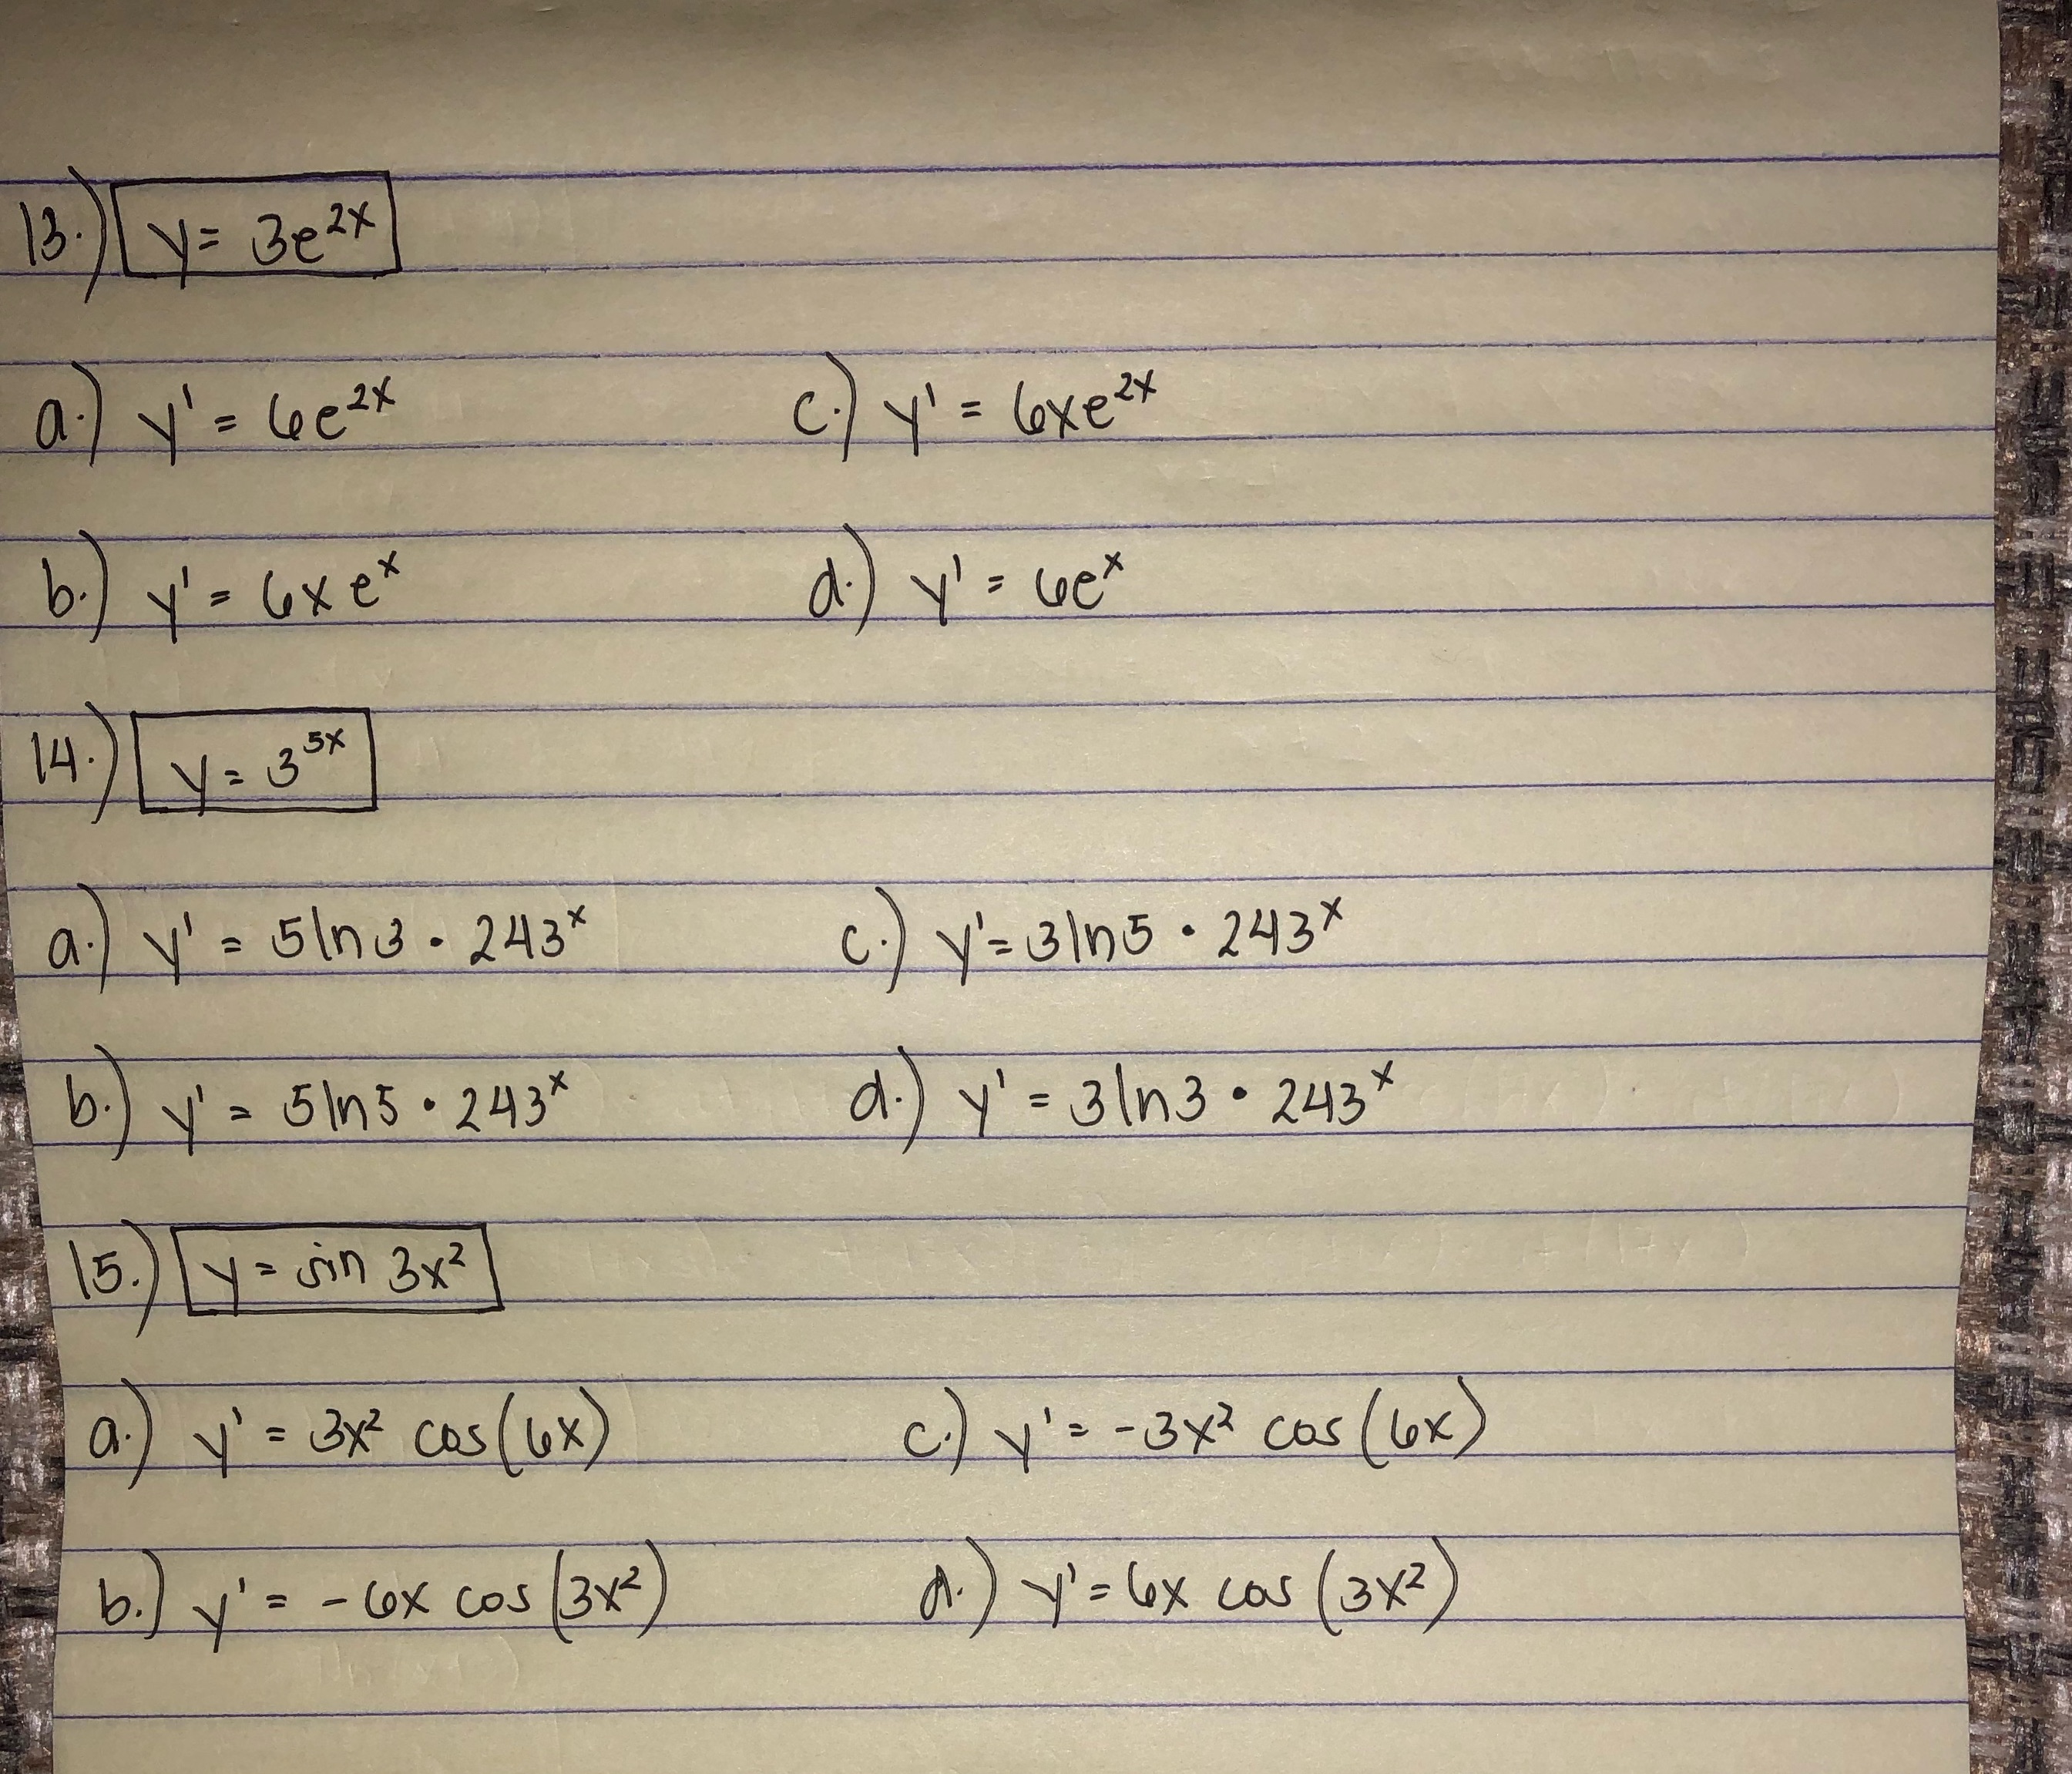 13.) y = 3e^2x
a.) y' = 6e^2x c.) y' = 6xe^2x
b.) y' = 6xe^x d.) y' = 6e^x
14.) y = 3^5x
a.) y' = 5ln3 • 243^x c.) y' = 3ln5 • 243^x
b.) y' = 5ln5 • 243^x d.) y' = 3ln3 • 243^x
15.) y = sin 3x²
a.) y' = 3x² cos(6x) c.) y' = -3x² cos(6x)
b.) y' = -6x cos(3x²) d.) y' = 6x cos(3x²)